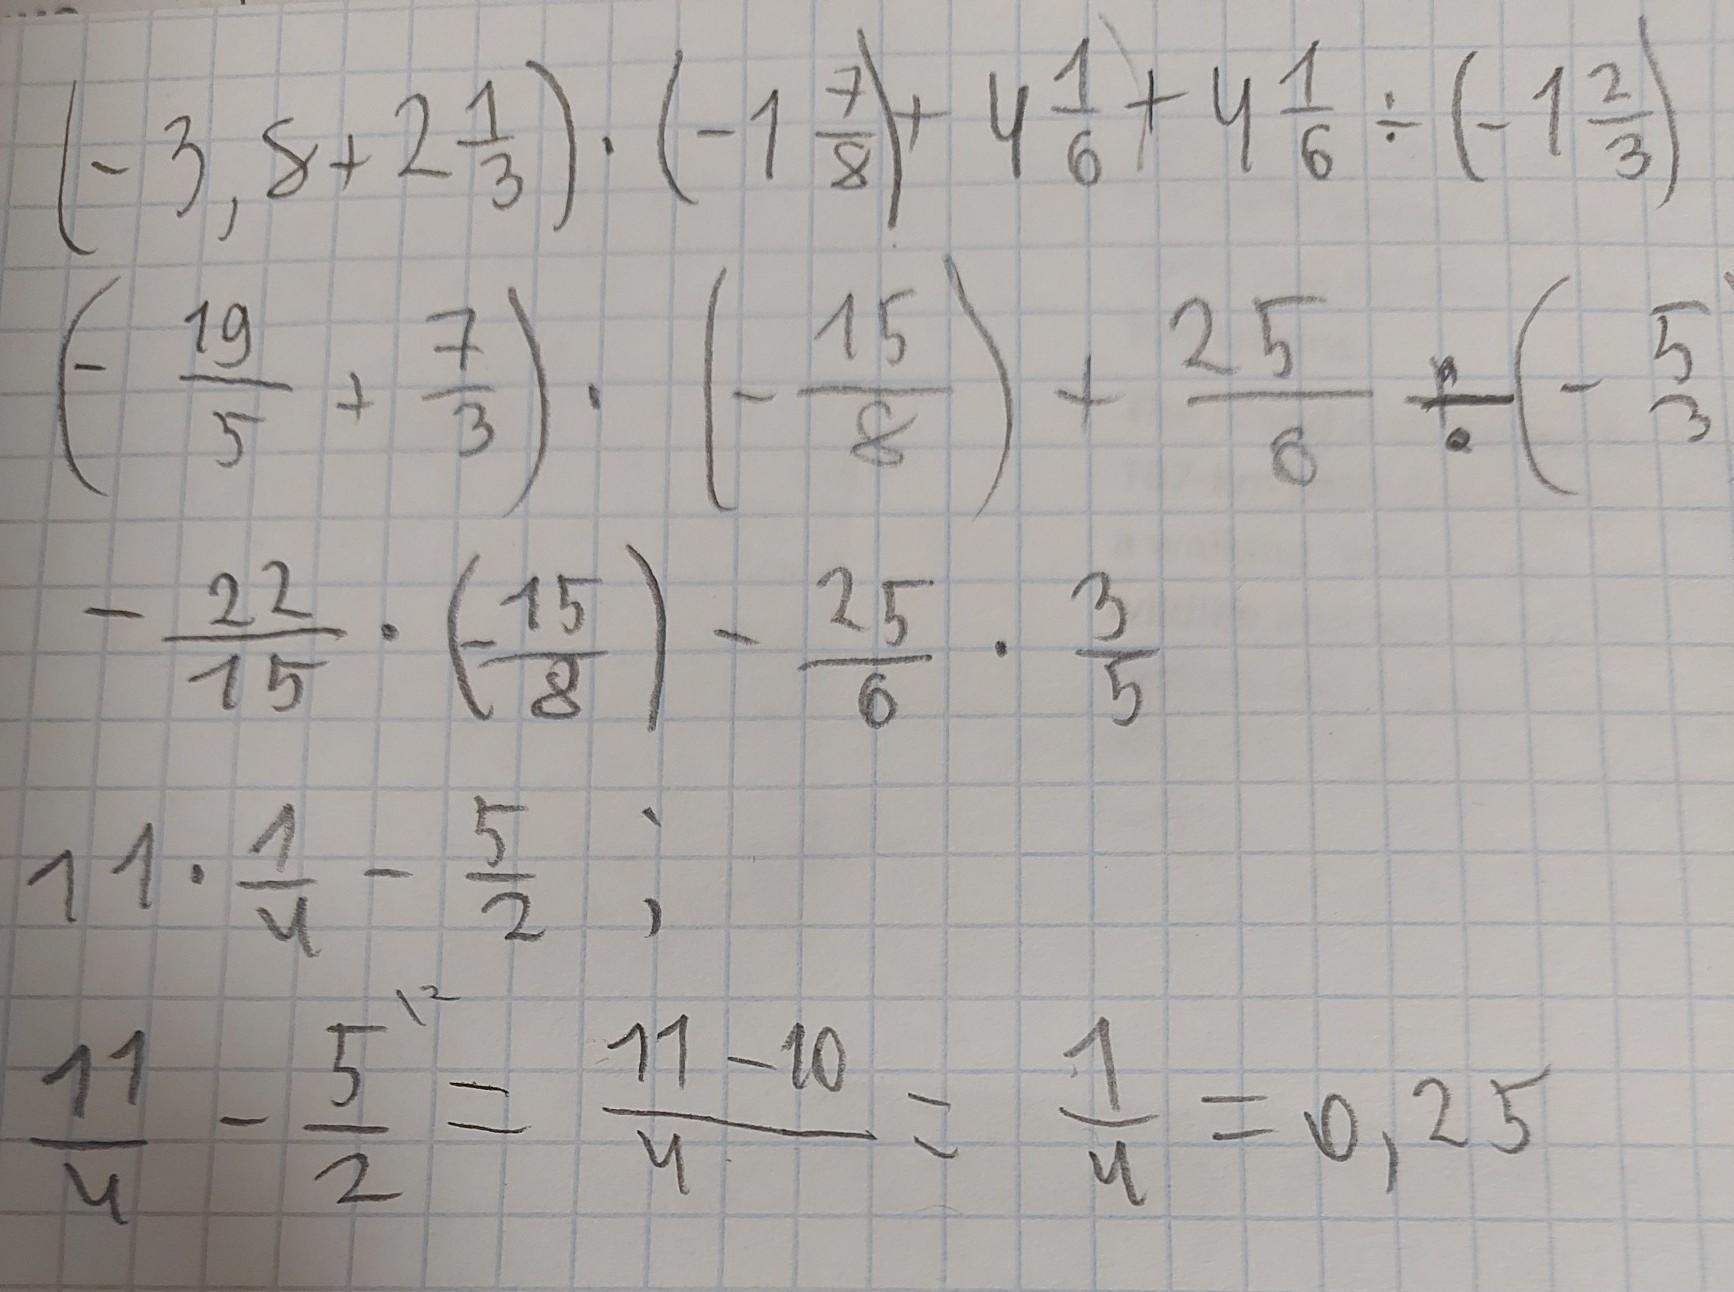 (-3,8+2 1/3)·(-1 7/8)+4 1/6)+4 1/6÷(-1 2/3)
(-19/5+7/3)·(-15/8)+25/6÷(-5/3
-22/15·(-15/8)-25/6·3/5
11·1/4-5/2;
11/4-5/2\2=11-10/4=1/4=0,25